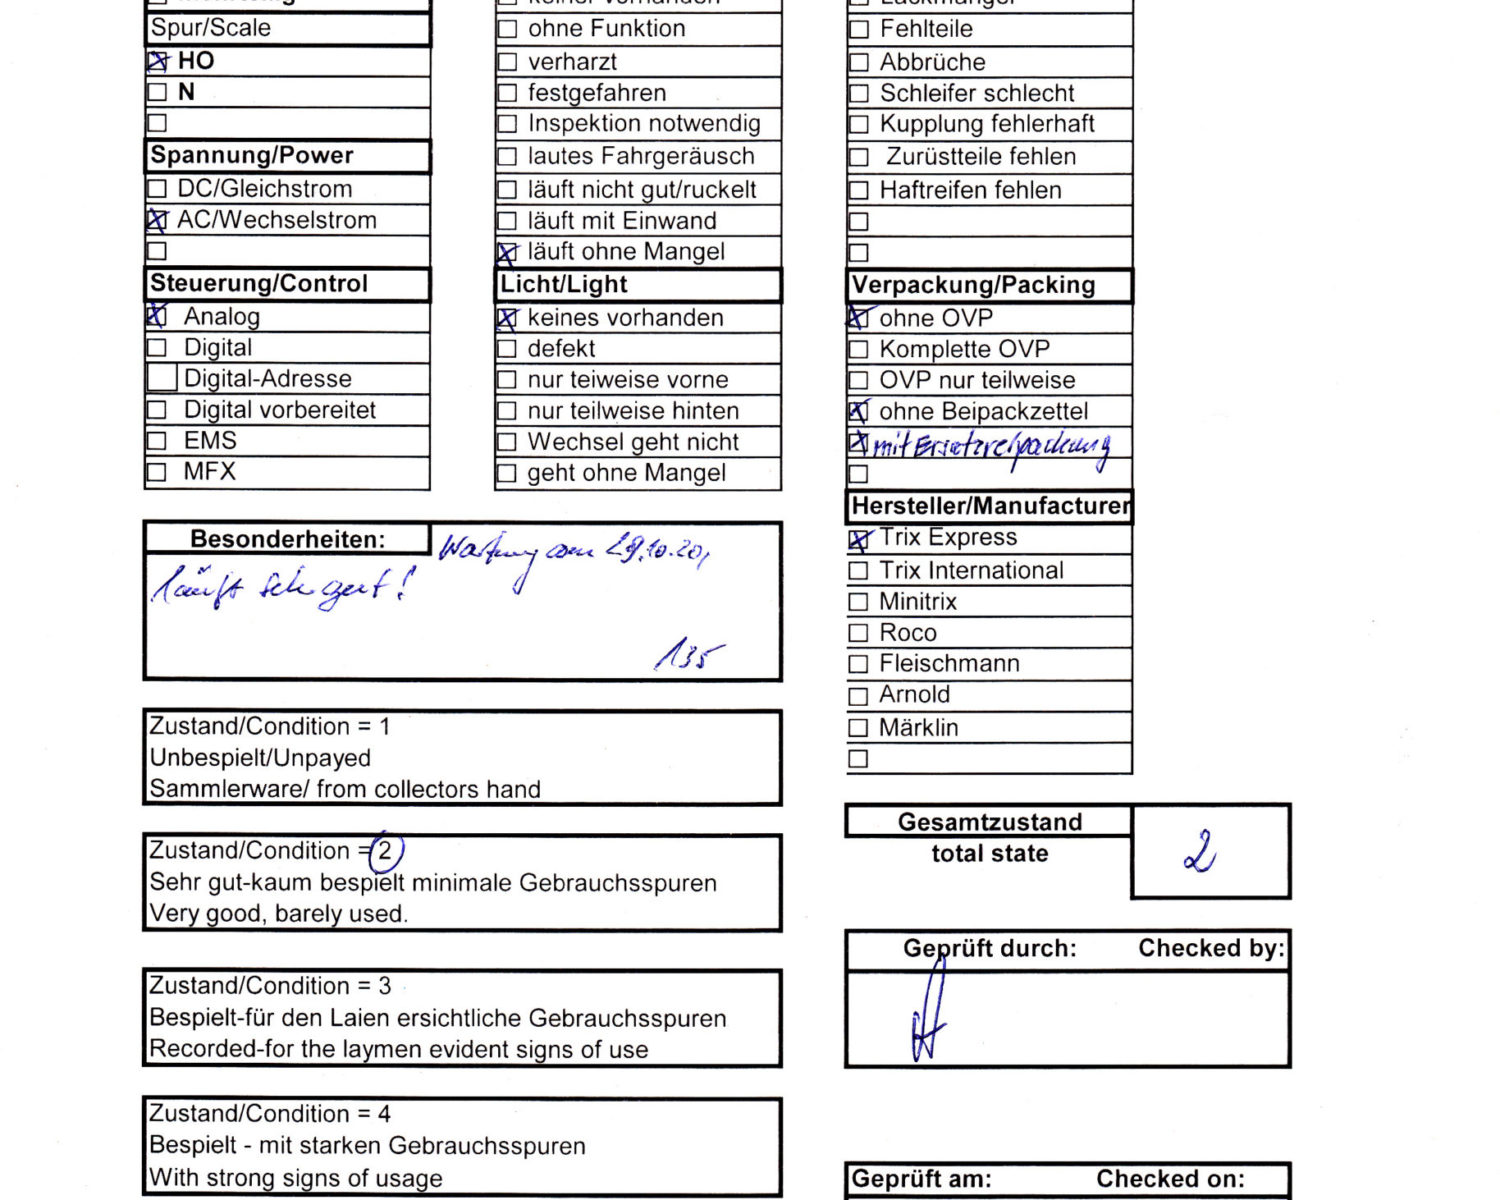 Spur/Scale
HO
N
Spannung/Power
DC/Gleichstrom
AC/Wechselstrom
Steuerung/Control
Analog
Digital
Digital-Adresse
Digital vorbereitet
EMS
MFX
ohne Funktion
verharzt
festgefahren
Inspektion notwendig
lautes Fahrgeräusch
läuft nicht gut/ruckelt
läuft mit Einwand
läuft ohne Mangel
Licht/Light
keines vorhanden
defekt
nur teiweise vorne
nur teilweise hinten
Wechsel geht nicht
geht ohne Mangel
Fehlteile
Abbrüche
Schleifer schlecht
Kupplung fehlerhaft
Zurüstteile fehlen
Haftreifen fehlen
Verpackung/Packing
ohne OVP
Komplette OVP
OVP nur teilweise
ohne Beipackzettel
mit Ersatzverpackung
Hersteller/Manufacturer
Trix Express
Trix International
Minitrix
Roco
Fleischmann
Arnold
Märklin
Besonderheiten: Wartung am 29.10.20,
läuft sehr gut!
135
Zustand/Condition = 1
Unbespielt/Unpayed
Sammlerware/ from collectors hand
Zustand/Condition = 2
Sehr gut-kaum bespielt minimale Gebrauchsspuren
Very good, barely used.
Zustand/Condition = 3
Bespielt-für den Laien ersichtliche Gebrauchsspuren
Recorded-for the laymen evident signs of use
Zustand/Condition = 4
Bespielt - mit starken Gebrauchsspuren
With strong signs of usage
Gesamtzustand
total state
2
Geprüft durch: Checked by:
Geprüft am: Checked on: